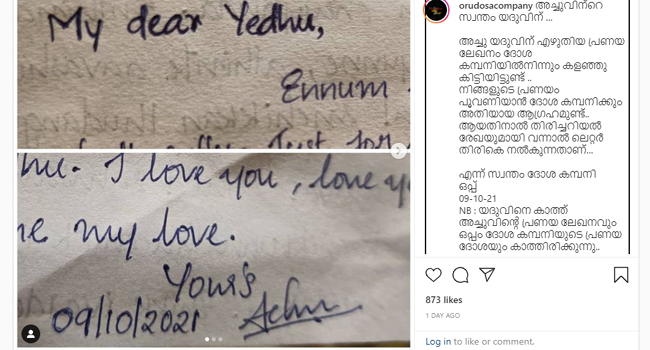 My dear Yedhu,
Ennum
Just for
hu. I love you, love yo
ne my love.
Your's
09/10/2021 Achu
orudosacompany അച്ചുവിന്റെ
സ്വന്തം യദുവിന് ...
അച്ചു യദുവിന് എഴുതിയ പ്രണയ
ലേഖനം ദോശ
കമ്പനിയിൽനിന്നും കളഞ്ഞു
കിട്ടിയിട്ടുണ്ട് ..
നിങ്ങളുടെ പ്രണയം
പൂവണിയാൻ ദോശ കമ്പനിക്കും
അതിയായ ആഗ്രഹമുണ്ട്..
ആയതിനാൽ തിരിച്ചറിയൽ
രേഖയുമായി വന്നാൽ ലെറ്റർ
തിരികെ നൽകുന്നതാണ്...
എന്ന് സ്വന്തം ദോശ കമ്പനി
ഒപ്പ്
09-10-21
NB : യദുവിനെ കാത്ത്
അച്ചുവിന്റെ പ്രണയ ലേഖനവും
ഒപ്പം ദോശ കമ്പനിയുടെ പ്രണയ
ദോശയും കാത്തിരിക്കുന്നു..
873 likes
1 DAY AGO
Log in to like or comment.